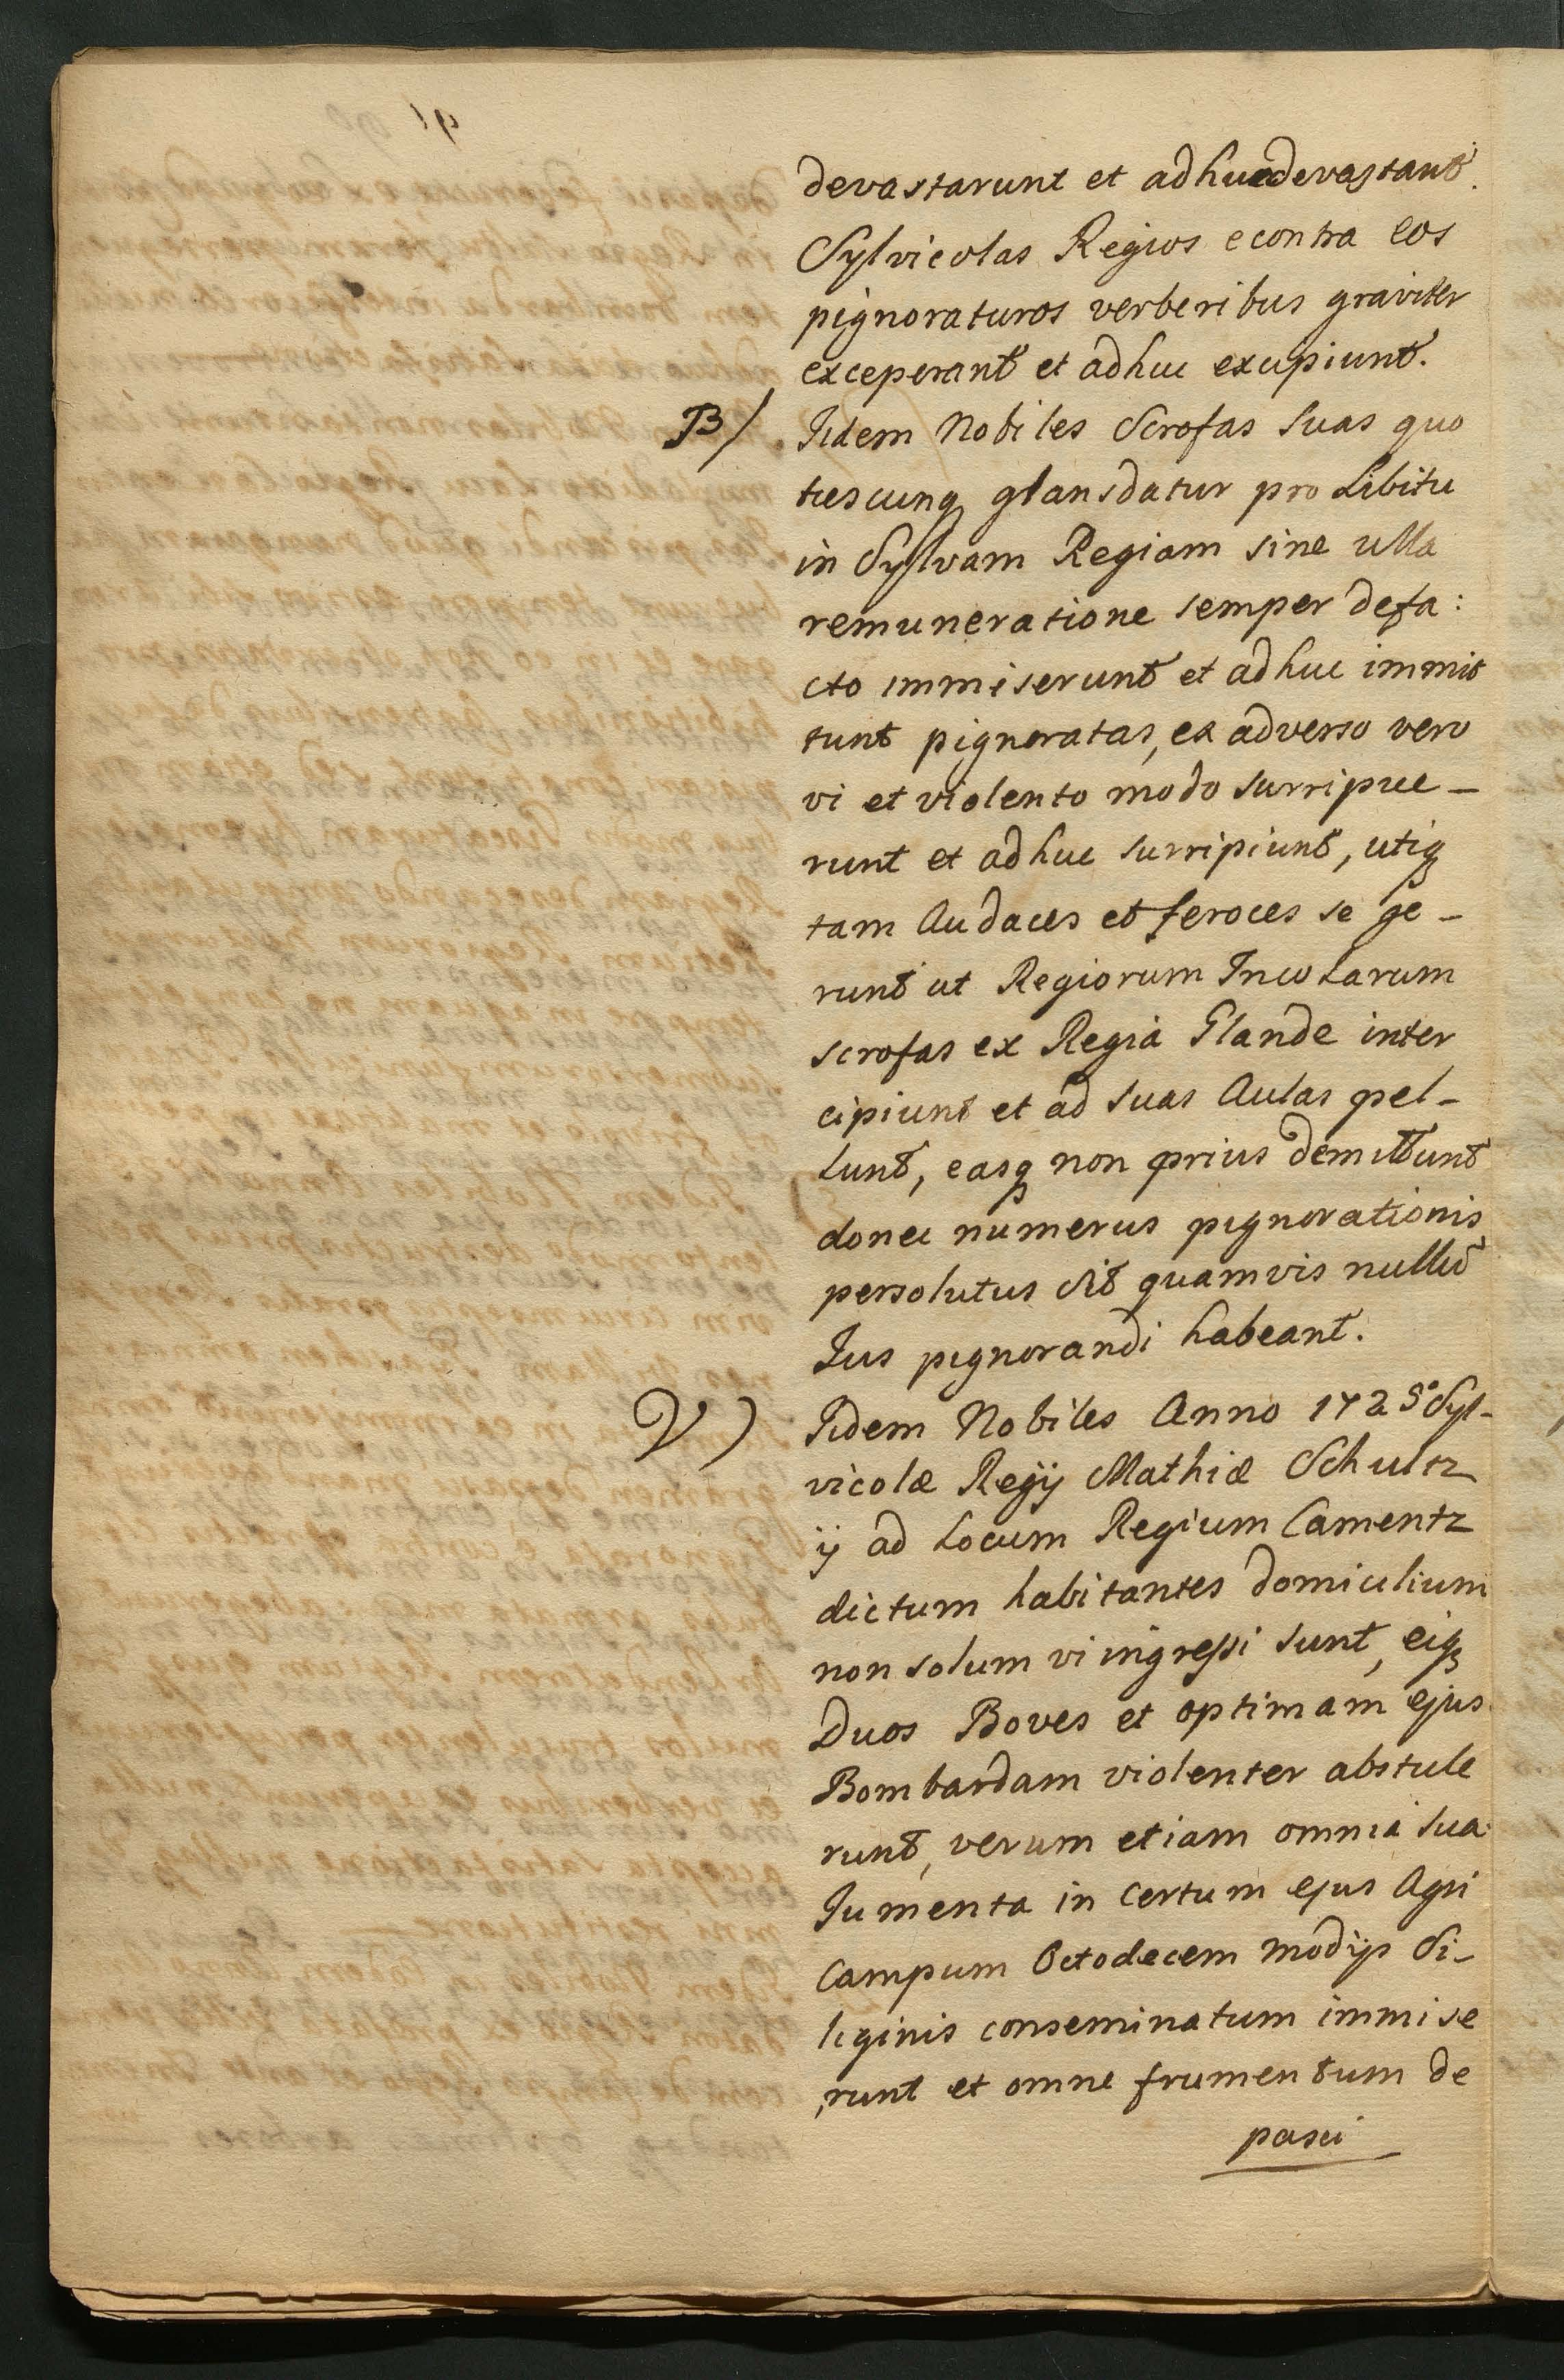 devastarunt et adhuc devastant.
Sylvicolas Regios econtra eos
pignoraturos verberibus graviter
exceperant et adhuc excipiunt.
B/ Iidem Nobiles Scrofas suas quo
tiescunq glans datur pro Libitu
in Sylvam Regiam sine ulla
remuneratione semper defa:
cto immiserunt et adhuc immit
tunt pignoratas, ex adverso vero
vi et violento modo surripue-
runt et adhuc surripiunt, utiq
tam Audaces et feroces se ge-
runt ut Regiorum Incolarum
scrofas ex Regiâ Glande inter
cipiunt et ad suas Aulas pel-
lunt, easq non prius demittunt
donec numerus pignorationis
persolutus sit quamvis nullũ
Jus pignorandi habeant.
V) Iidem Nobiles Anno 1725º Syl-
vicolæ Regÿ Mathiæ Schultz
ÿ ad Locum Regium Camentz
dictum habitantes domicilium
non solum vi ingressi sunt, eiq
Duos Boves et optimam ejus
Bombardam violenter abstule
runt, verum etiam omnia sua
Jumenta in certum ejus Agri
Campum Octodecem modÿs Si-
liginis conseminatum immise
runt et omne frumentum de
pasci